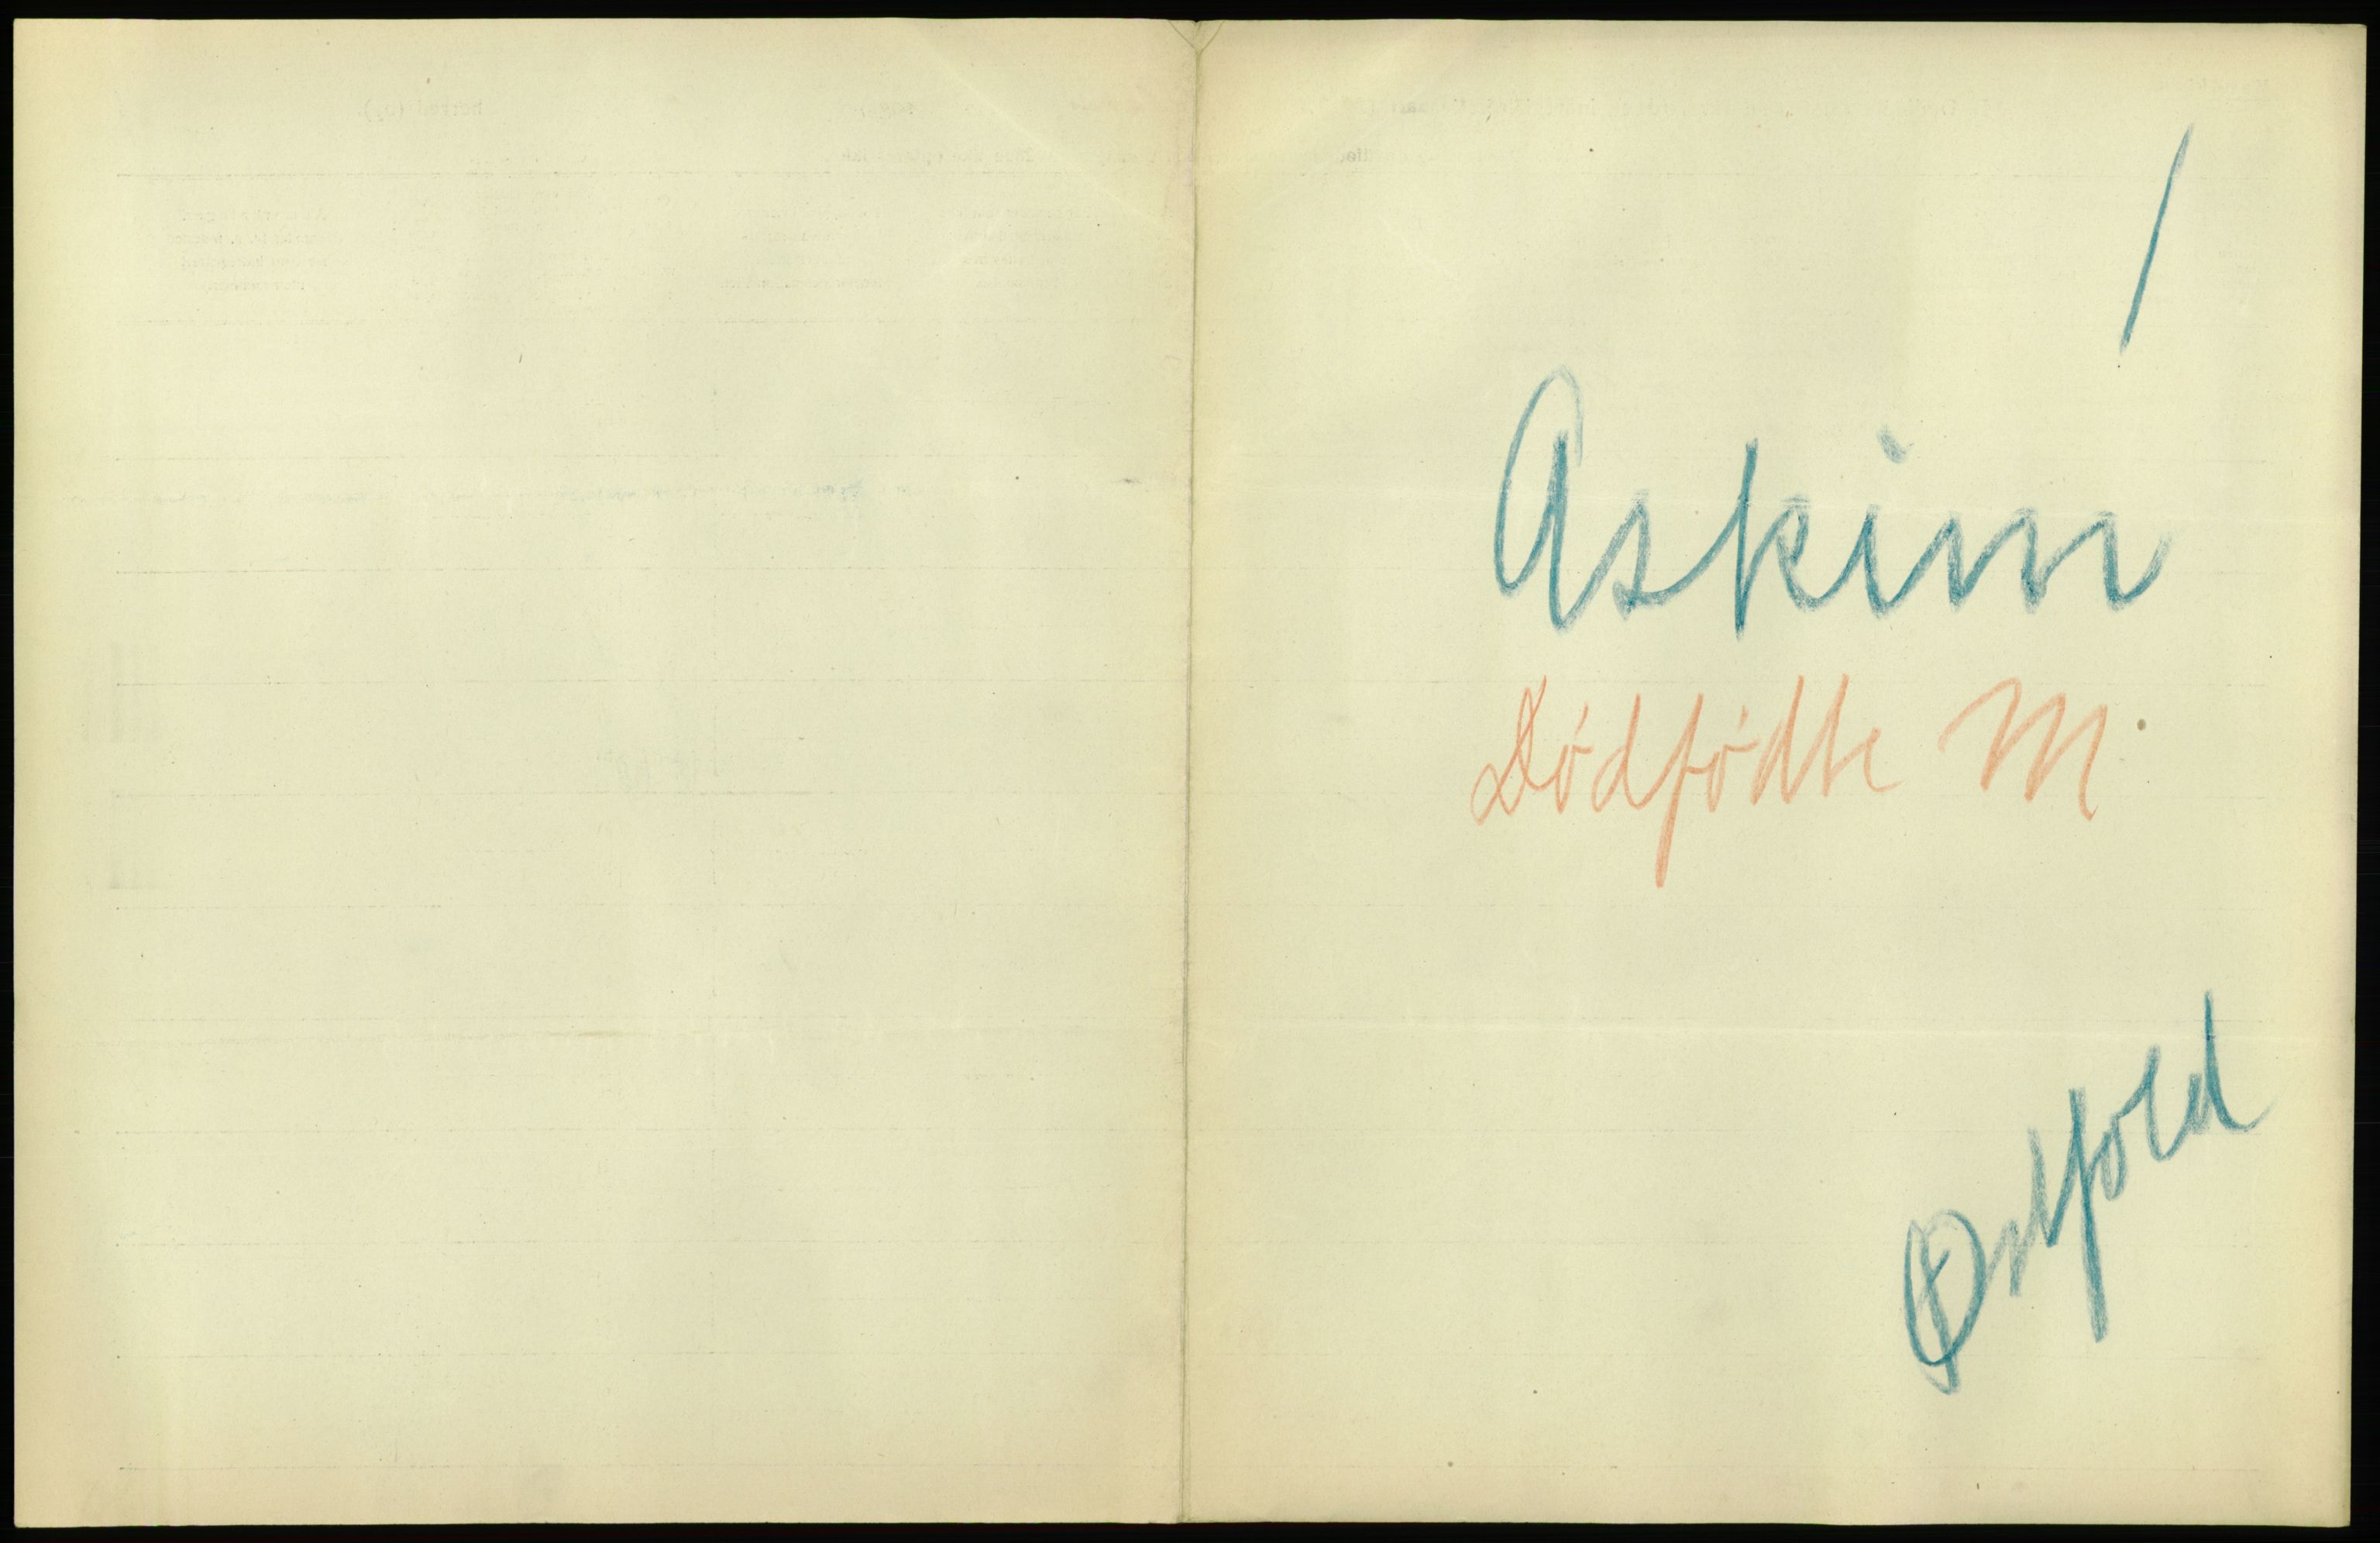 /
Askim
Dødfødte M.
Østfold